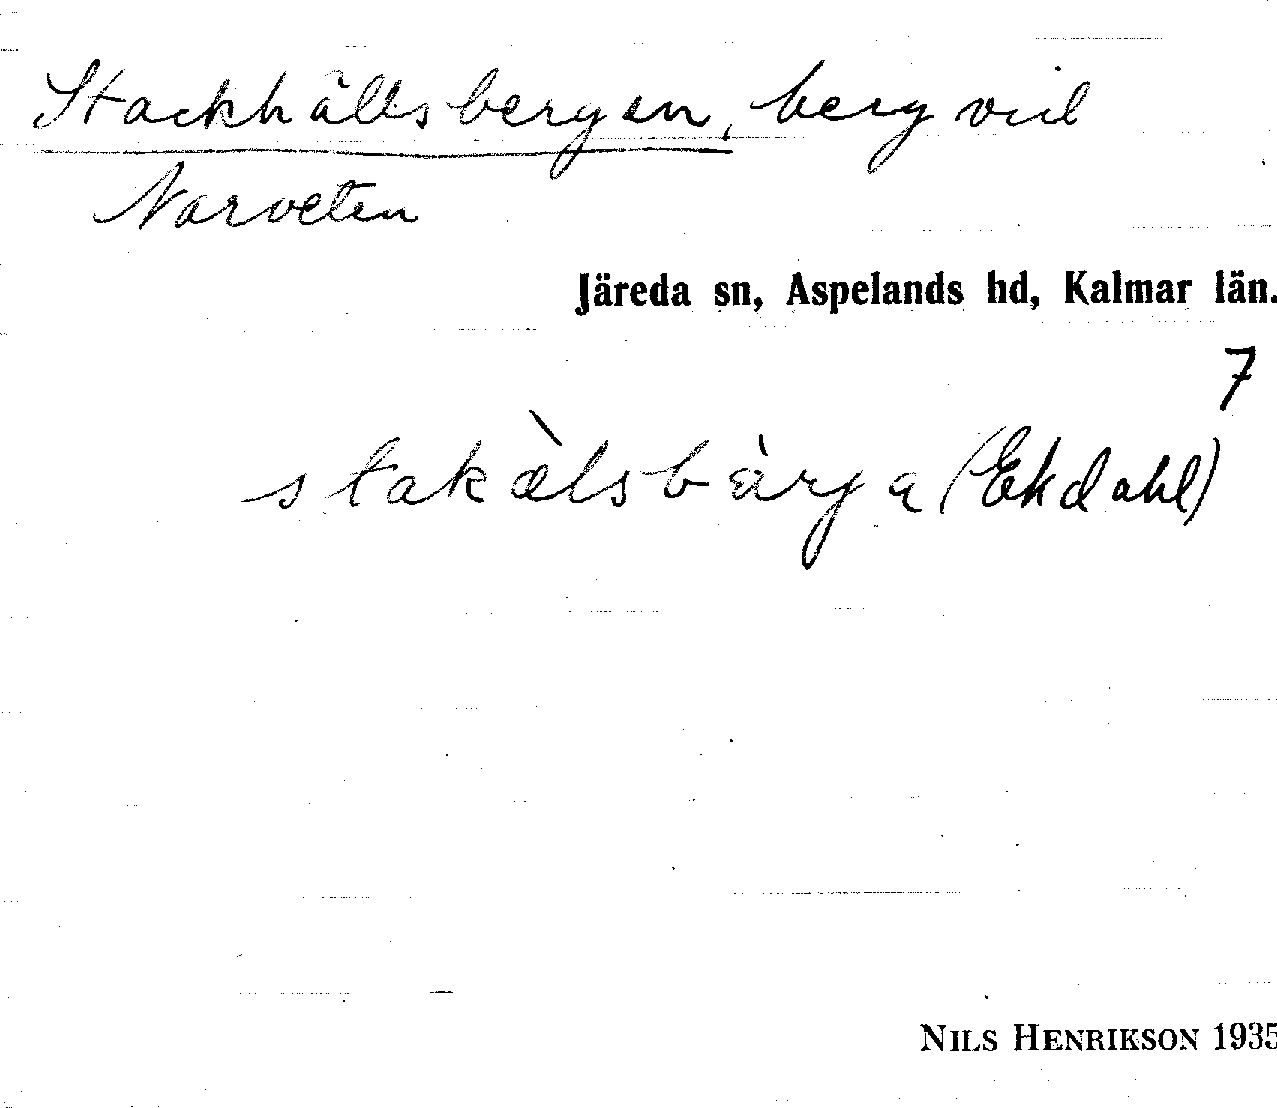 Stackhällsbergen, berg vid
Narveten
Järeda sn, Aspelands hd, Kalmar län.
7
stakæ̀lsbàrja (Ekdahl)
NILS HENRIKSON 1935